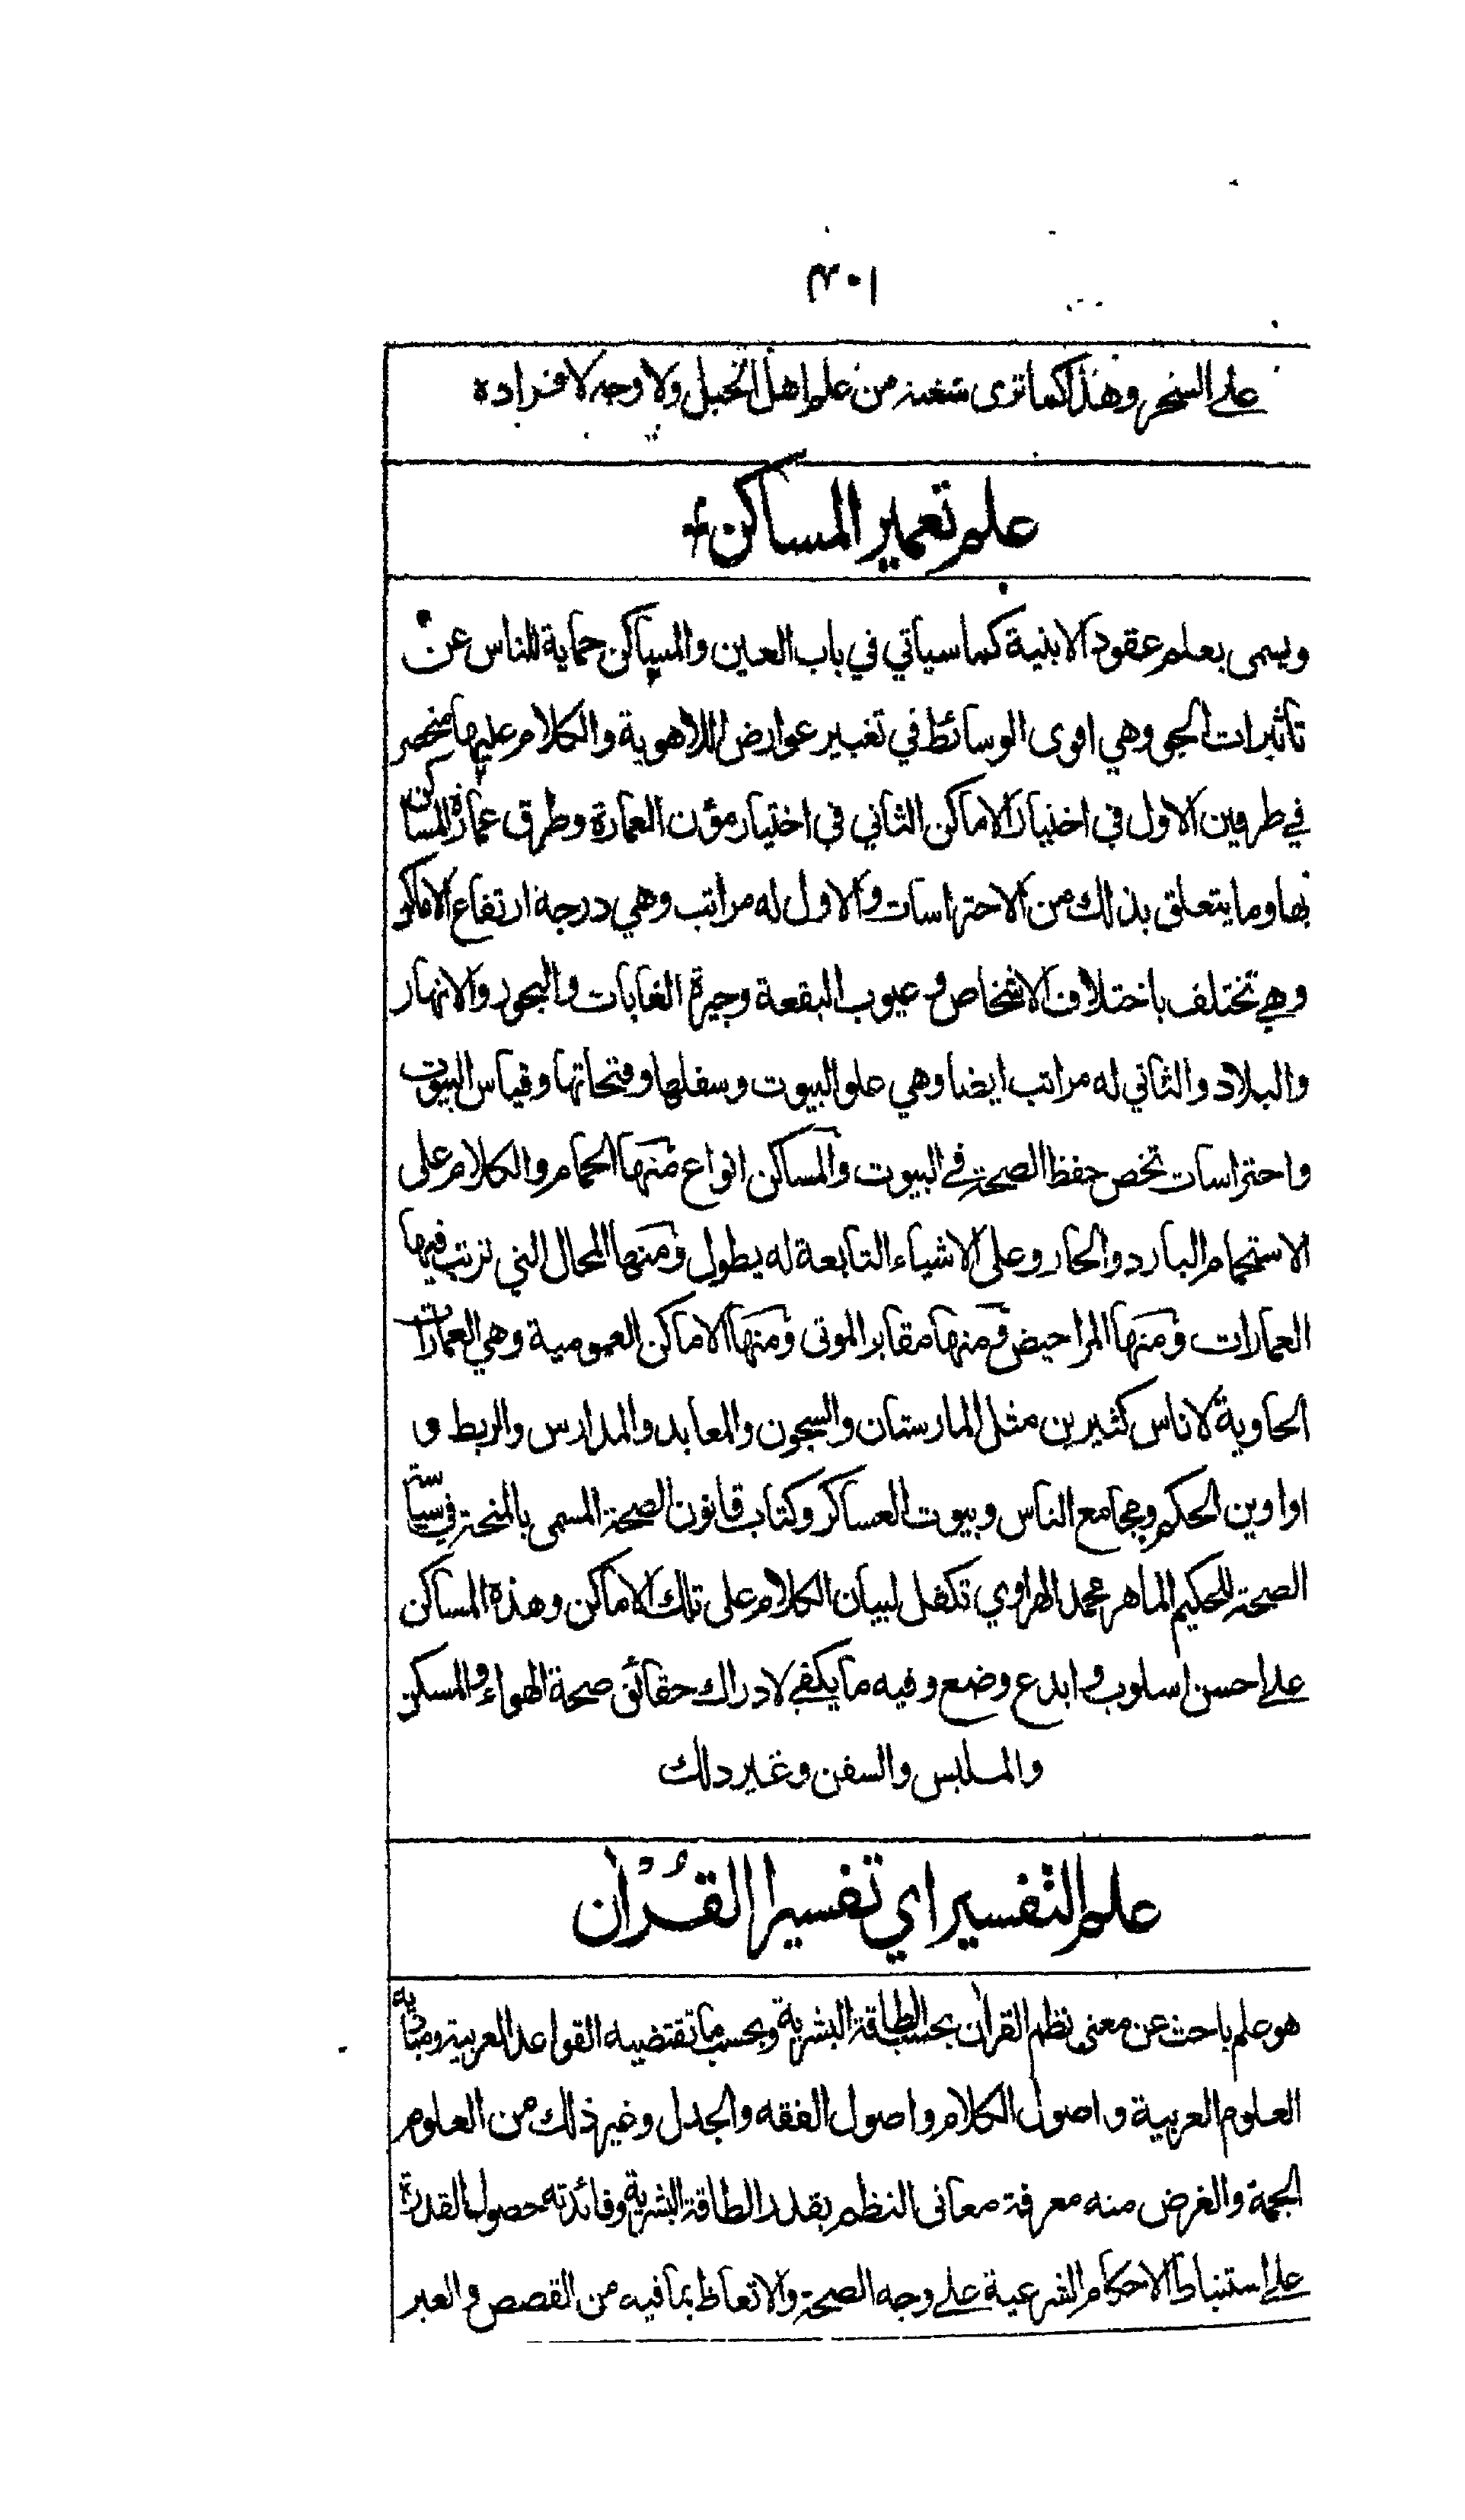 ٣٠١
على السخر وهذا كما ترى شعبة من علم اهل الحيل ولا وجه لا فراده
علم تعمير المساكن
ويسمى بعلم عقود الابنية كما سياتي في باب العين والمساكن حماية للناس عن
تاثيرات الجو وهي اقوى الوسائط في تغيير عوارض الاهوية والكلام عليها منحصر
في طرفين الاول في اختيار الاماكن الثاني في اختيار مؤن العمارة وطرق عمارة المساكن
بها وما يتعلق بذلك من الاحتراسات والاول له مراتب وهي درجة ارتفاع الاماكن
وهي تختلف باختلاف الاشخاص وعيوب البقعة وجيرة الغابات والبحور والانهار
والبلاد والثاني له مراتب ايضا وهي علو البيوت وسفلها وفتحاتها وقياس البيوت
واحتراسات تخص حفظ الصحة في البيوت والمساكن انواع منها الحمام والكلام على
الاستحمام البارد والحار وعلى الاشياء التابعة له يطول ومنها المحال التي ترتب فيها
العمارات ومنها المراحيض ومنها مقابر الموتى ومنها الاماكن العمومية وهي العمارات
الحاوية لاناس كثيرين مثل المارستان والسجون والمعابد والمدارس والربط و
اواوين الحكم ومجامع الناس وبيوت العساكر وكتاب قانون الصحة المسمى بالمنحة في سياسة
الصحة للحكيم الماهر محمد الهراوي تكفل لبيان الكلام على تلك الاماكن وهذه المساكن
على احسن اسلوب وابدع وضع وفيه ما يكفي لادراك حقائق صحة الهواء والمسكن
والملبس والسفن وغير ذلك
علم التفسير اي تفسير القُرْاٰن
هو علم باحث عن معنى نظم القراٰن بحسب الطاقة البشرية وبحسب ما تقتضيه القواعد العربية ومباديه
العلوم العربية واصول الكلام واصول الفقه والجدل وغير ذلك من العلوم
الجمة والغرض منه معرفة معانى النظم بقدر الطاقة البشرية وفائدته حصول القدرة
على استنباط الاحكام الشرعية على وجه الصحة والاتعاظ بما فيه من القصص والعبر